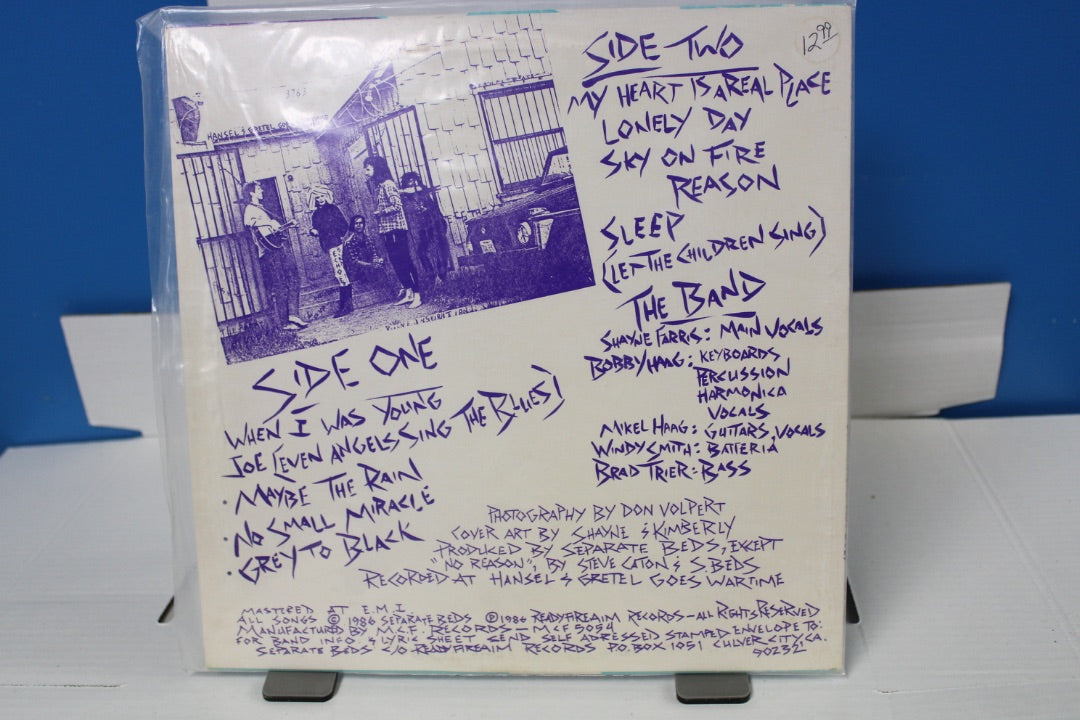 12.99
3763
HANSEL & GRETEL GO
SIDE TWO
MY HEART IS A REAL PLACE
LONELY DAY
SKY ON FIRE
REASON
SLEEP
(LET THE CHILDREN SING)
THE BAND
SHAYNE FARRIS: MAIN VOCALS
BOBBY HAAG: KEYBOARDS
PERCUSSION
HARMONICA
VOCALS
MIKEL HAAG: GUITARS, VOCALS
WINDY SMITH: BATTERIA
BRAD TRIER: BASS
SIDE ONE
WHEN I WAS YOUNG
JOE (EVEN ANGELS SING THE BLUES)
· MAYBE THE RAIN
· NO SMALL MIRACLE
· GREY TO BLACK
PHOTOGRAPHY BY DON VOLPERT
COVER ART BY SHAYNE & KIMBERLY
PRODUCED BY SEPARATE BEDS, EXCEPT
"NO REASON", BY STEVE CATON & S. BEDS
RECORDED AT HANSEL & GRETEL GOES WARTIME
MASTERED AT E.M.I.
ALL SONGS © 1986 SEPARATE BEDS ℗ 1986 READYFIREAIM RECORDS - ALL RIGHTS RESERVED
MANUFACTURED BY M.C.F. RECORDS - MCF 5054
FOR BAND INFO & LYRIC SHEET SEND SELF ADRESSED STAMPED ENVELOPE TO:
SEPARATE BEDS C/O READYFIREAIM RECORDS P.O. BOX 1051 CULVER CITY CA.
90232